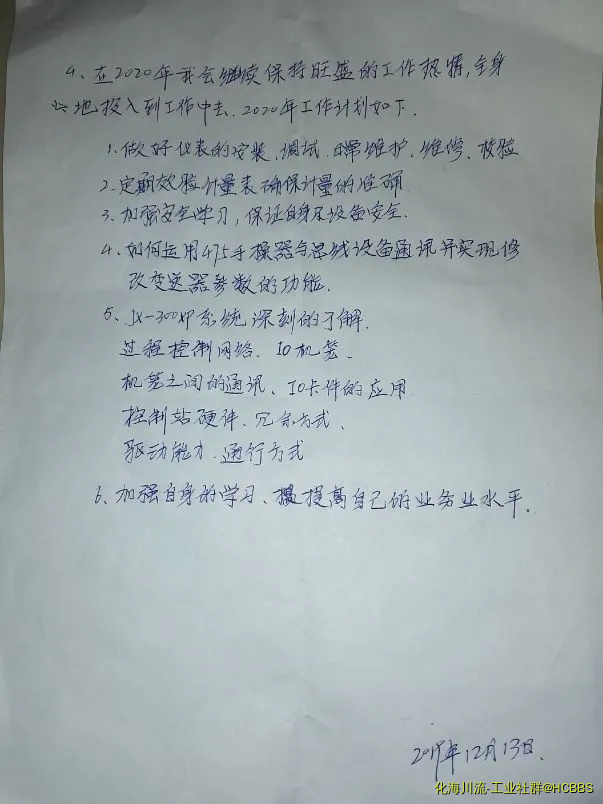 4、在2020年我会继续保持旺盛的工作热情,全身
心地投入到工作中去、2020年工作计划如下.
1.做好仪表的安装、调试、日常维护、维修、校验
2.定期效验计量表确保计量的准确
3、加强安全学习,保证自身及设备安全.
4、如何运用475手操器与总线设备通讯并实现修
改变送器参数的功能.
5、JX-300XP系统深刻的了解.
过程控制网络、IO机笼.
机笼之间的通讯、IO卡件的应用
控制站硬件、冗余方式、
驱动能力、通行方式
6、加强自身的学习、提高自己的业务业水平.
2019年12月13日.
化海川流-工业社群@HCBBS